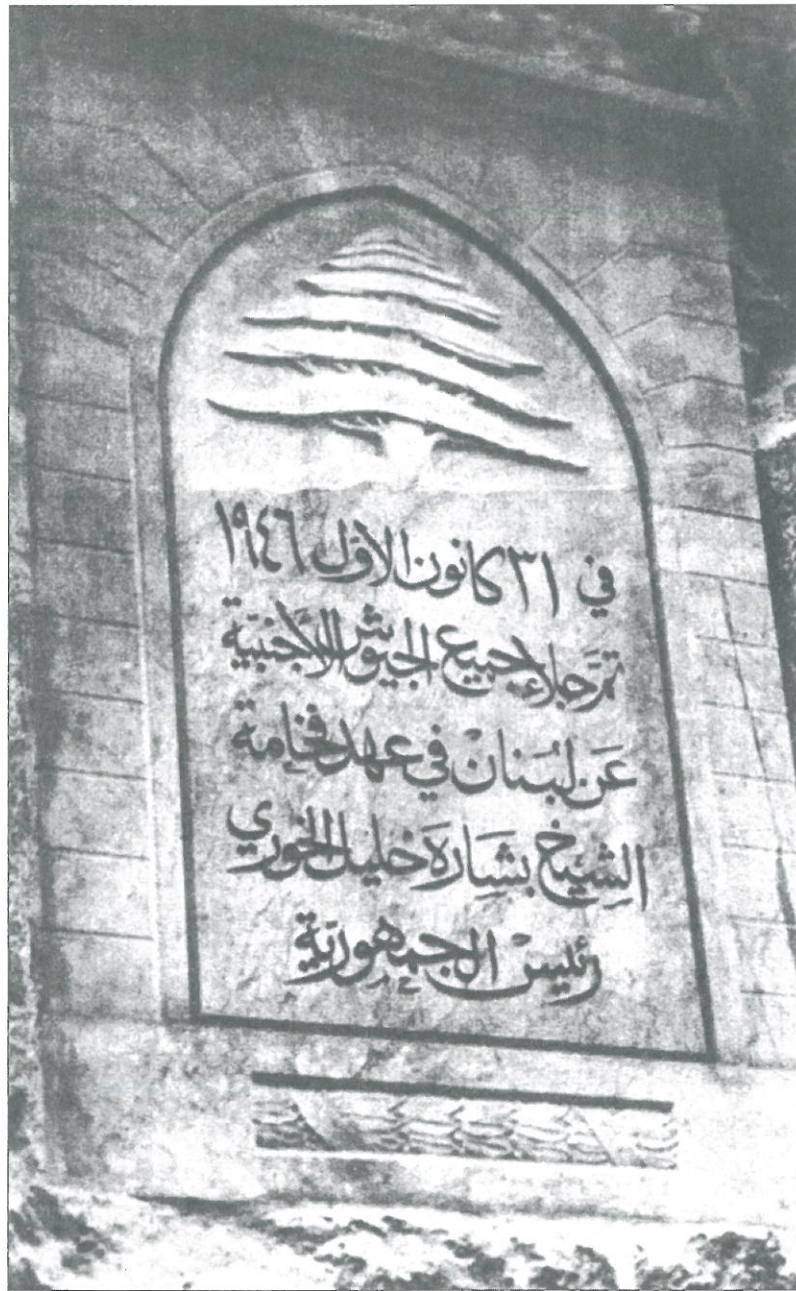 في ٣١ كانون الأول ١٩٤٦
تمَّ جلاء جميع الجيوش الأجنبيّة
عَن لبُنَان في عهد فخامة
الشِيخ بشَارَة خليل الخوري
رئيس الجمهوريّة